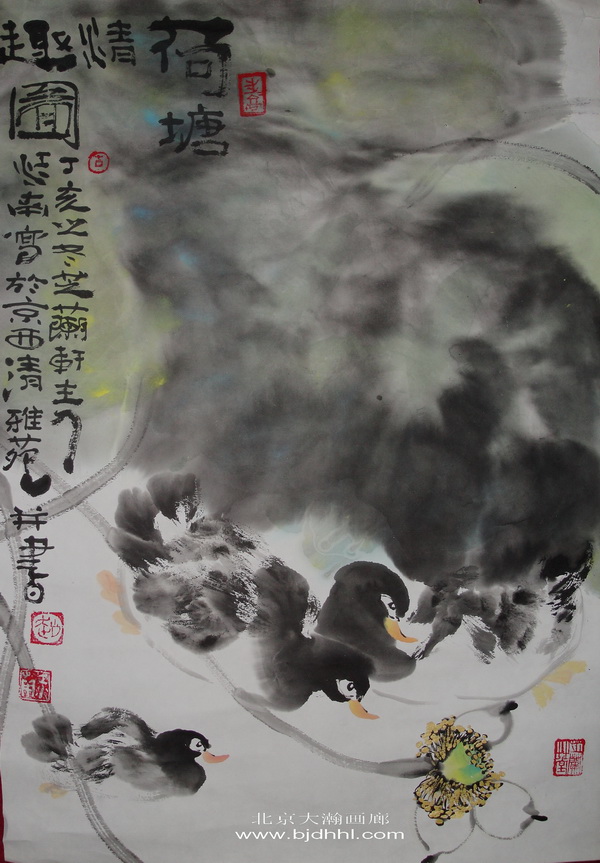 荷塘
清趣
圖
丁亥之冬芝蘭軒主人
於京西清雅苑并書
北京大瀚画廊
www.bjdhhl.com